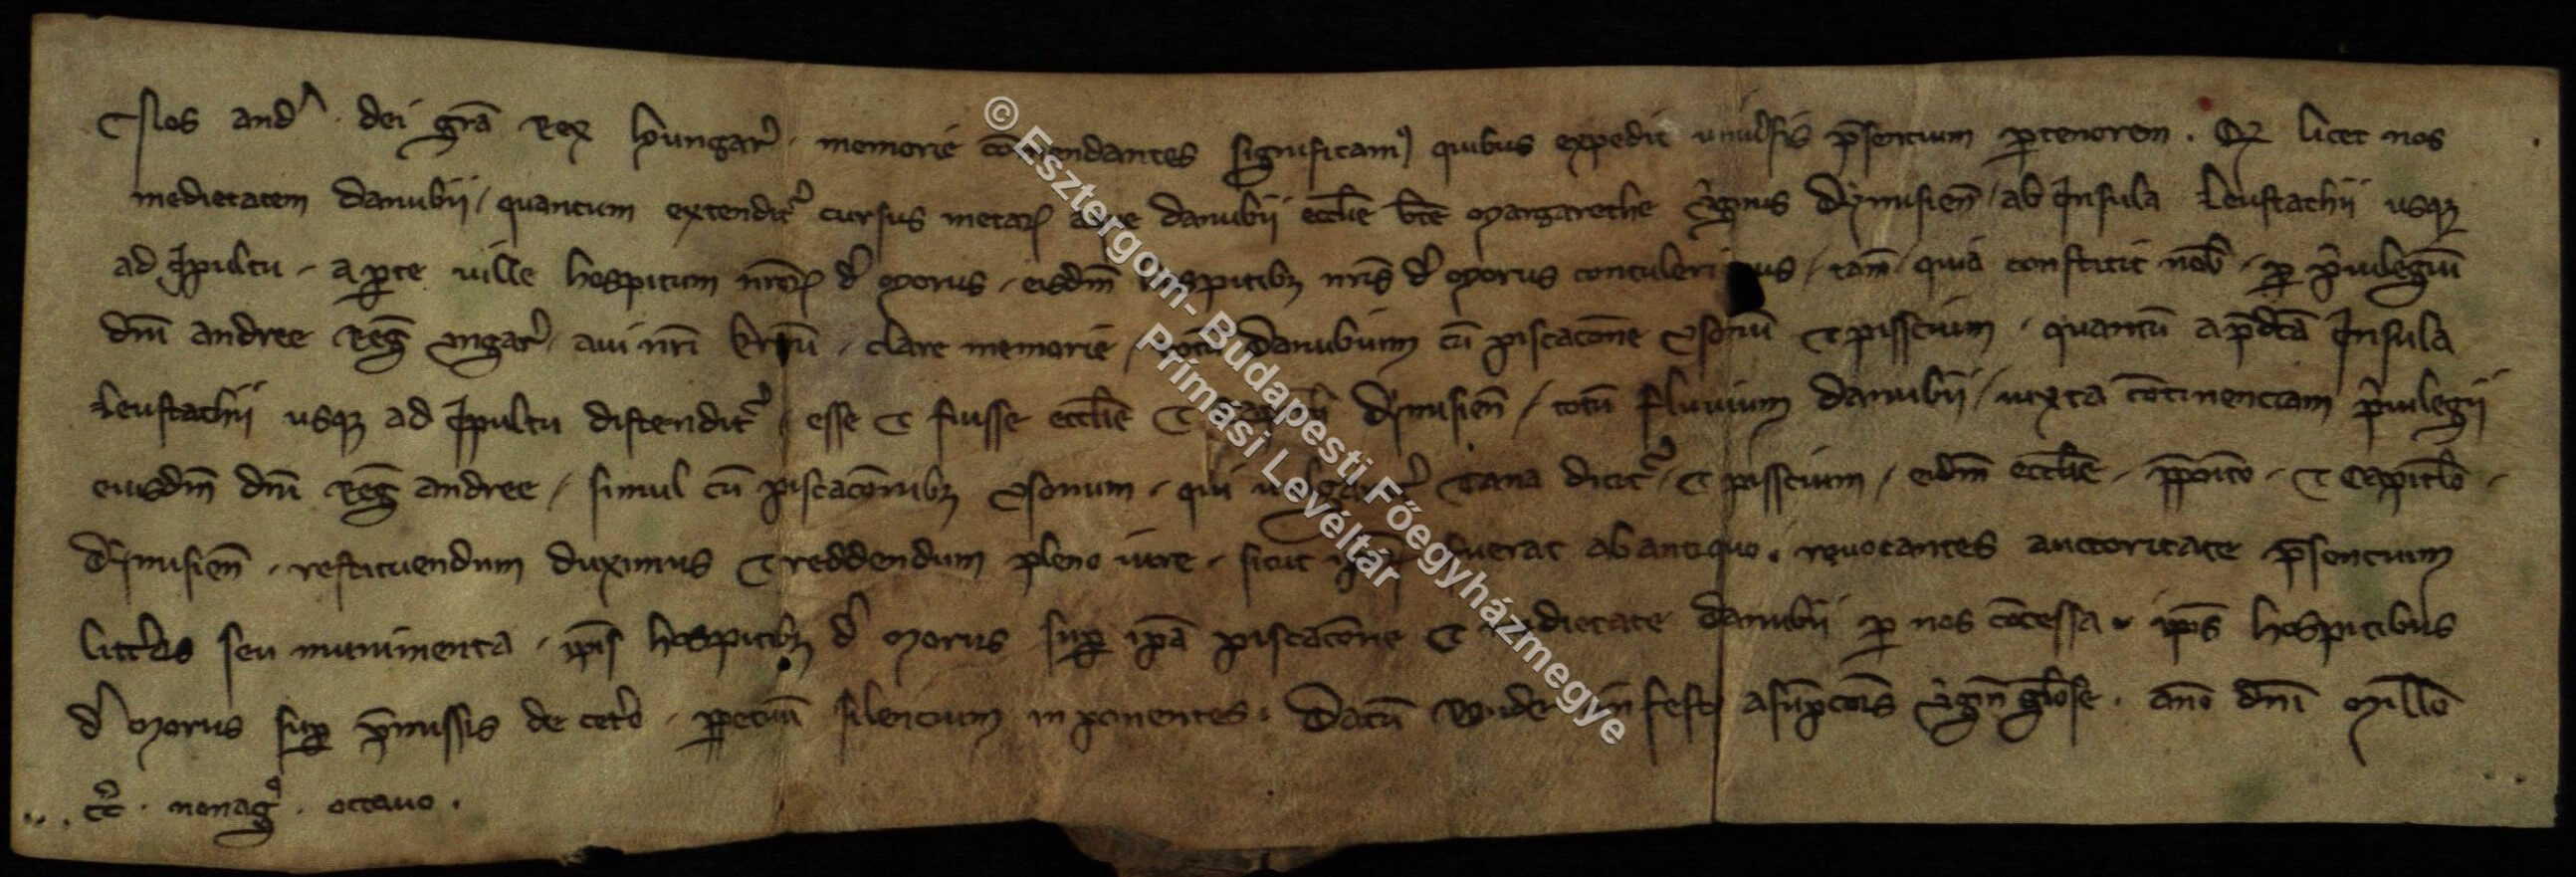 Nos and᷎ · dei gr̄a Rex hungar᷎ · memorie co᷎mendantes significam᷒ quibus expedit uniu᷎sis p̄sencium ꝑ tenorem · Qꝫ licet nos
medietatem danubij / quantum extendit᷎ cursus metaꝝ aque danubij eccl̄ie bt̄e Margarethe v᷎ginis Dymisien̄ / ab Insula Leustachij usqꝫ
ad Ipultu · a ꝑte uille hospitum nr̄oꝝ d᷎ Morus · eisdm̄ hospitibꝫ nr̄is d᷎ Morus contuleri us / tam̄ quia constitit nob᷎ · ꝑ p᷎uilegiū
dn̄i andree Reg̅ vngar᷎ · aui nr̄i kr̄mū · clare memorie / totū Danubium cū piscac̄one Vsonū et pisscium · quantū a p̄dc̄a Insula
Leustachij usqꝫ ad Ipultu distendit᷎ · esse et fuisse eccl̄ie et Dymisien̄ / totū fluuium danubij / iuxta cōtinenciam p᷎uilegij
eiusdm̄ dn̄i Reg̅ andree / simul cū piscac̄onibꝫ Vsonum · qui uulgarit᷎ Tana dicit᷎ · et pisscium / eidm̄ eccl̄ie · p̄posito · et Capitl̄o ·
Dymisien̄ · restituendum duximus et reddendum pleno iure · sicut fuerat ab antiquo · reuocantes auctoritate p̄sencium
litt᷎as seu munimenta · ip̄is hospitibꝫ d᷎ Morus sup̄ ip̄a piscac̄one et medietate danubij ꝑ nos cōcessa · ip̄is hospitibus
d᷎ Morus sup̄ p̄missis de cet᷎o · ꝑpetuū silencium in ponentes · Datū Bude in festo asūpc̄ois v᷎gin̄ gl̄ose · ano̅ dn̄i Mill̄o
cc᷎ · nonag᷎ · octauo ·
© Esztergom-Budapesti Főegyházmegye
Prímási Levéltár